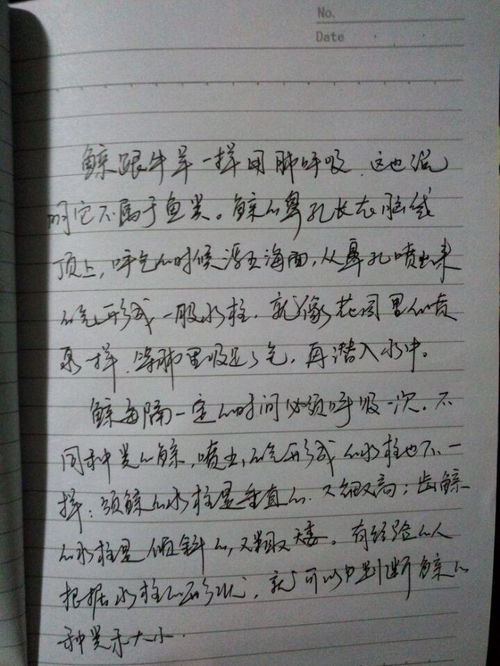 No.
Date
鲸跟牛羊一样用肺呼吸，这也说
明它不属于鱼类。鲸的鼻孔长在脑袋
顶上，呼气的时候浮在海面，从鼻孔喷出来
的气形成一股水柱，就像花园里的喷
泉一样，等肺里吸足了气，再潜入水中。
鲸每隔一定的时间必须呼吸一次。不
同种类的鲸，喷出的气形成的水柱也不一
样：须鲸的水柱是垂直的，又细又高；齿鲸
的水柱是倾斜的，又粗又矮。有经验的人
根据水柱的形状，就可以判断鲸的
种类和大小。